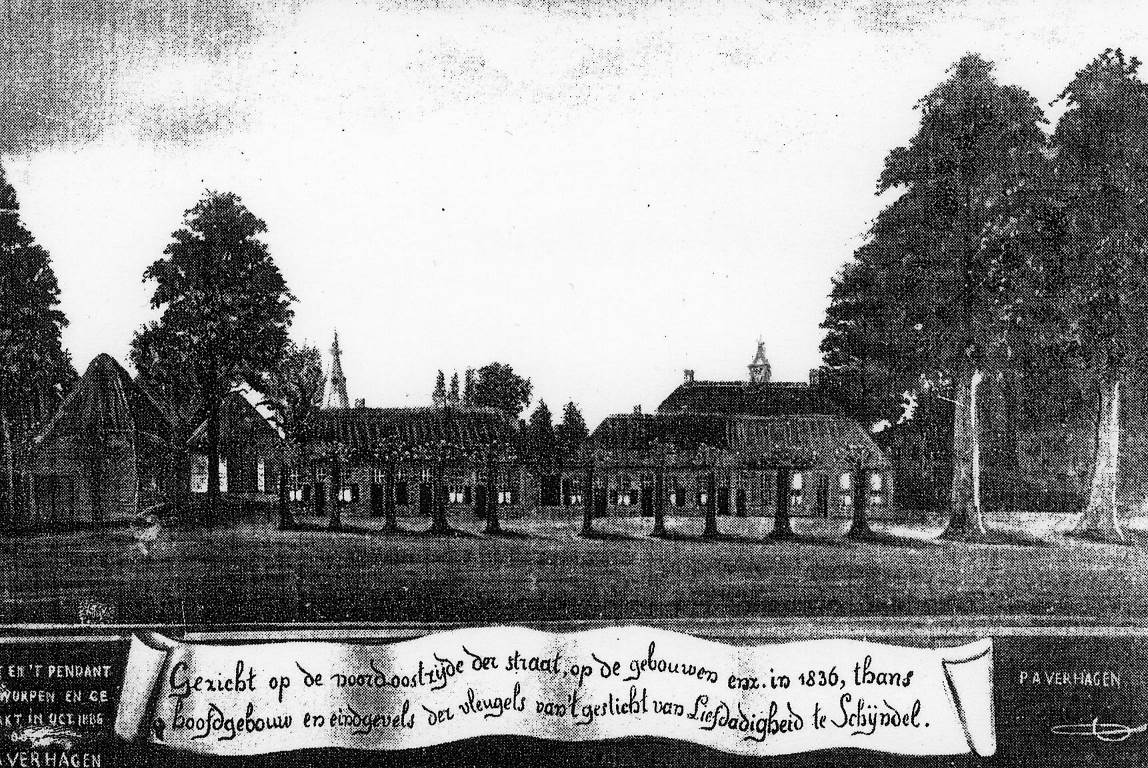 EN 'T PENDANT
WORPEN EN GE
AKT IN OCT 1886
VERHAGEN
Gezicht op de noord oostzijde der straat, op de gebouwen enz. in 1836, thans
hoofdgebouw en eindgevels der vleugels van 't gesticht van Liefdadigheid te Schijndel.
P A VERHAGEN